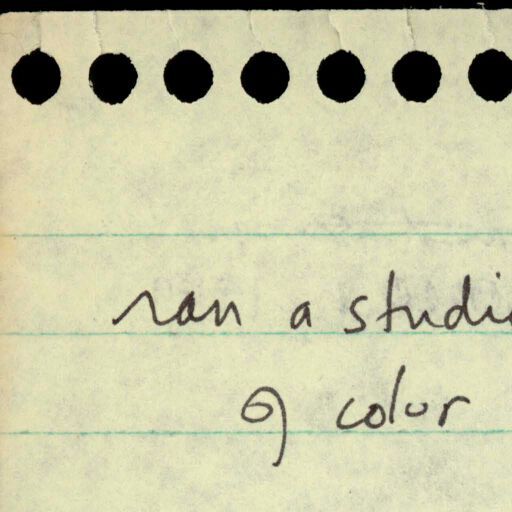 ran a studio
of color